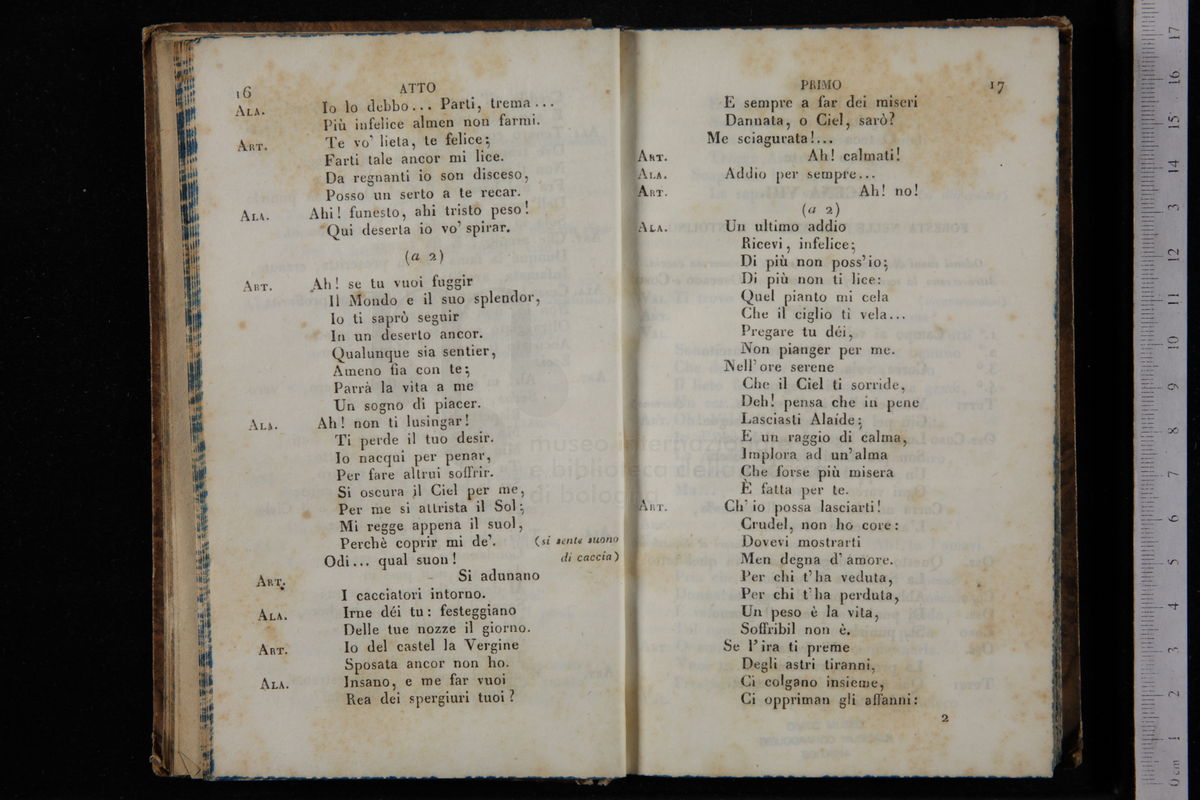 16
ATTO
ALA. Io lo debbo... Parti, trema...
Più infelice almen non farmi.
ART. Te vo' lieta, te felice;
Farti tale ancor mi lice.
Da regnanti io son disceso,
Posso un serto a te recar.
ALA. Ahi! funesto, ahi tristo peso!
Qui deserta io vo' spirar.
(a 2)
ART. Ah! se tu vuoi fuggir
Il Mondo e il suo splendor,
Io ti saprò seguir
In un deserto ancor.
Qualunque sia sentier,
Ameno fia con te;
Parrà la vita a me
Un sogno di piacer.
ALA. Ah! non ti lusingar!
Ti perde il tuo desir.
Io nacqui per penar,
Per fare altrui soffrir.
Si oscura il Ciel per me,
Per me si attrista il Sol;
Mi regge appena il suol,
Perchè coprir mi de'. (si sente suono
Odi... qual suon! di caccia)
ART. Si adunano
I cacciatori intorno.
ALA. Irne déi tu: festeggiano
Delle tue nozze il giorno.
ART. Io del castel la Vergine
Sposata ancor non ho.
ALA. Insano, e me far vuoi
Rea dei spergiuri tuoi?
PRIMO
17
E sempre a far dei miseri
Dannata, o Ciel, sarò?
Me sciagurata!...
ART. Ah! calmati!
ALA. Addio per sempre...
ART. Ah! no!
(a 2)
ALA. Un ultimo addio
Ricevi, infelice;
Di più non poss'io;
Di più non ti lice:
Quel pianto mi cela
Che il ciglio ti vela...
Pregare tu déi,
Non pianger per me.
Nell'ore serene
Che il Ciel ti sorride,
Deh! pensa che in pene
Lasciasti Alaíde;
E un raggio di calma,
Implora ad un'alma
Che forse più misera
È fatta per te.
ART. Ch'io possa lasciarti!
Crudel, non ho core:
Dovevi mostrarti
Men degna d'amore.
Per chi t'ha veduta,
Per chi t'ha perduta,
Un peso è la vita,
Soffribil non è.
Se l'ira ti preme
Degli astri tiranni,
Ci colgano insieme,
Ci oppriman gli affanni:
2
museo internazionale
e biblioteca della
di bologna
0 cm 1 2 3 4 5 6 7 8 9 10 11 12 13 14 15 16 17